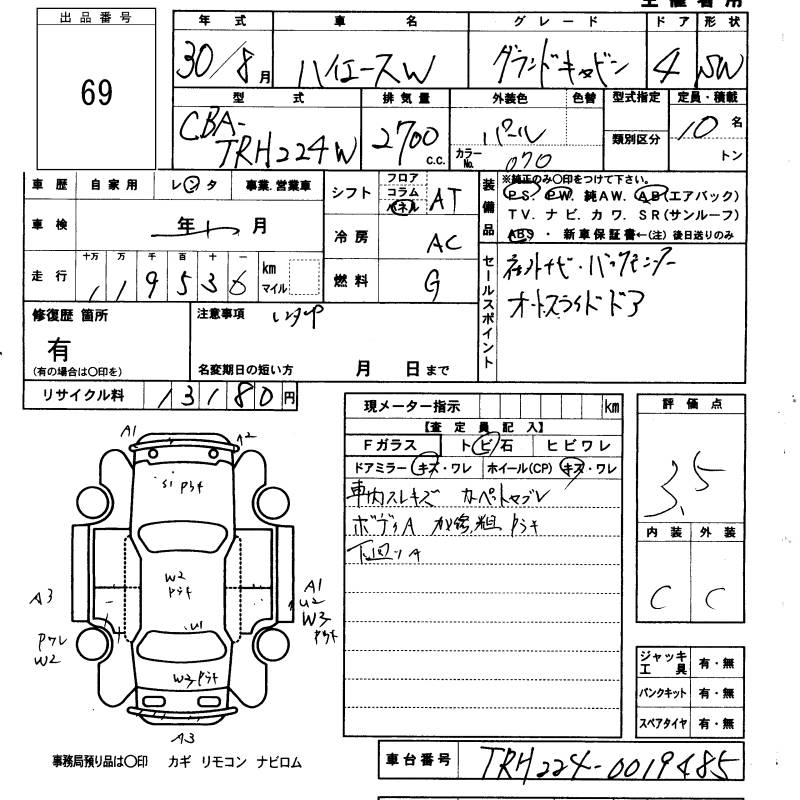 出品番号
69
年式 車名 グレード ドア 形状
30/8月 ハイエースW グランドキャビン 4 SW
型式 排気量 外装色 色替 型式指定 定員・積載
CBA-TRH224W 2700c.c. パール カラーNo. 070 類別区分 10名 トン
車歴 自家用 レンタ 事業.営業車
車検 年 月
走行 十万 万 千 百 十 一 km マイル
119536
シフト フロア コラム パネル AT
冷房 AC
燃料 G
装備品
※純正のみ〇印をつけて下さい。
PS. PW. 純AW. AB(エアバック)
TV. ナビ. カワ. SR(サンルーフ)
ABS ・ 新車保証書←(注) 後日送りのみ
セールスポイント
オートスライドドア
修復歴 箇所
有
(有の場合は〇印を)
注意事項
名変期日の短い方 月 日まで
リサイクル料 13180円
現メーター指示 km
【査定員記入】
Fガラス トビ石 ヒビワレ
ドアミラー キズ・ワレ ホイール(CP) キズ・ワレ
車内スレキズ
ボディA
下回りA
評価点
3.5
内装 外装
C C
ジャッキ工具 有・無
パンクキット 有・無
スペアタイヤ 有・無
A1 A2
S1 Pキ
W2
A3
A1
U2
W3
U1
W2
W3
A3
事務局預り品は〇印 カギ リモコン ナビロム
車台番号 TRH224-0019485